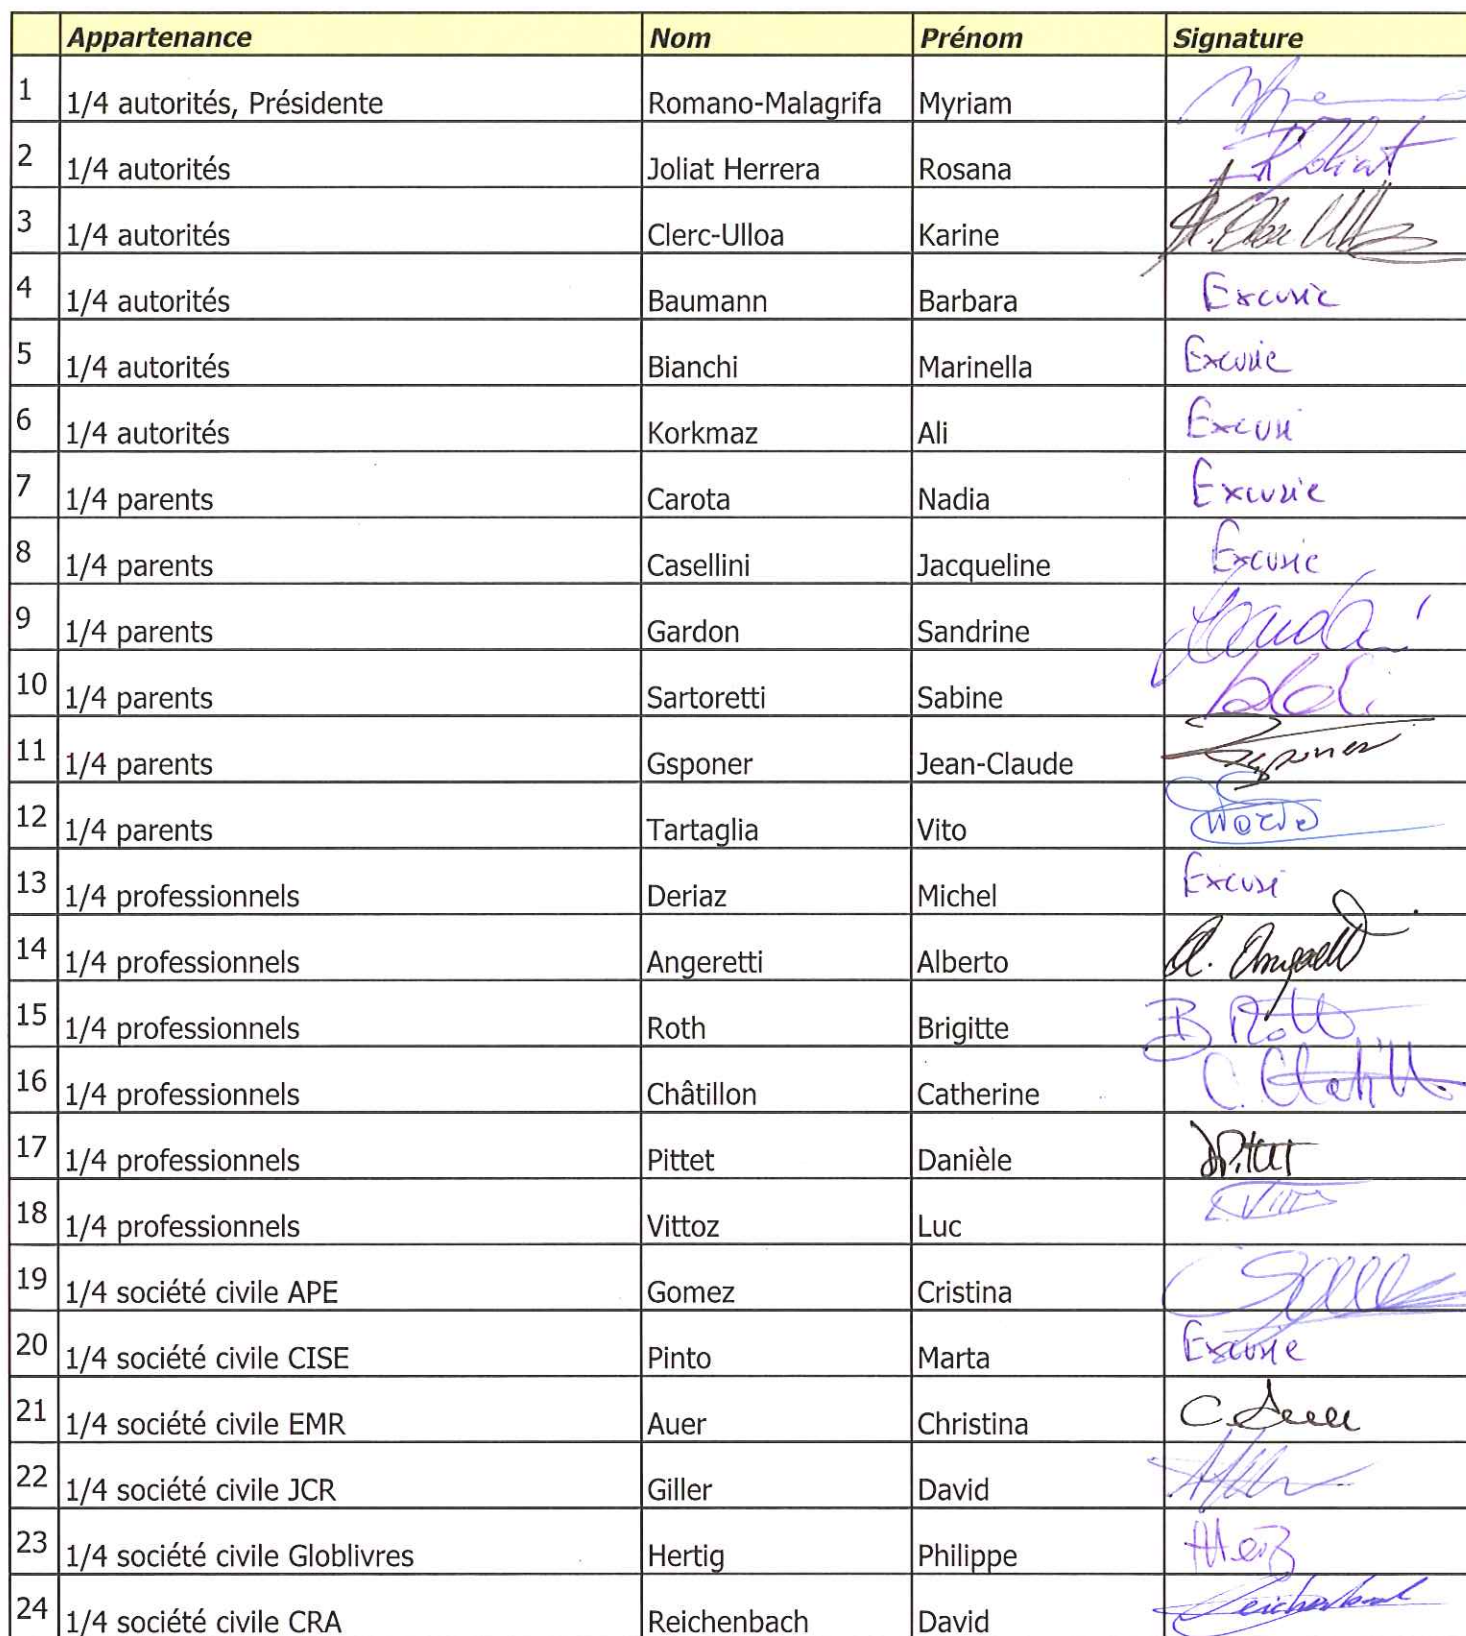 Appartenance Nom Prénom Signature
1 1/4 autorités, Présidente Romano-Malagrifa Myriam
2 1/4 autorités Joliat Herrera Rosana R Joliat
3 1/4 autorités Clerc-Ulloa Karine
4 1/4 autorités Baumann Barbara Excusée
5 1/4 autorités Bianchi Marinella Excusée
6 1/4 autorités Korkmaz Ali Excusé
7 1/4 parents Carota Nadia Excusée
8 1/4 parents Casellini Jacqueline Excusée
9 1/4 parents Gardon Sandrine
10 1/4 parents Sartoretti Sabine
11 1/4 parents Gsponer Jean-Claude Gsponer
12 1/4 parents Tartaglia Vito
13 1/4 professionnels Deriaz Michel Excusé
14 1/4 professionnels Angeretti Alberto A. Angeretti
15 1/4 professionnels Roth Brigitte B. Roth
16 1/4 professionnels Châtillon Catherine C. Châtillon
17 1/4 professionnels Pittet Danièle D. Pittet
18 1/4 professionnels Vittoz Luc L. Vittoz
19 1/4 société civile APE Gomez Cristina
20 1/4 société civile CISE Pinto Marta Excusée
21 1/4 société civile EMR Auer Christina C. Auer
22 1/4 société civile JCR Giller David
23 1/4 société civile Globlivres Hertig Philippe
24 1/4 société civile CRA Reichenbach David Reichenbach